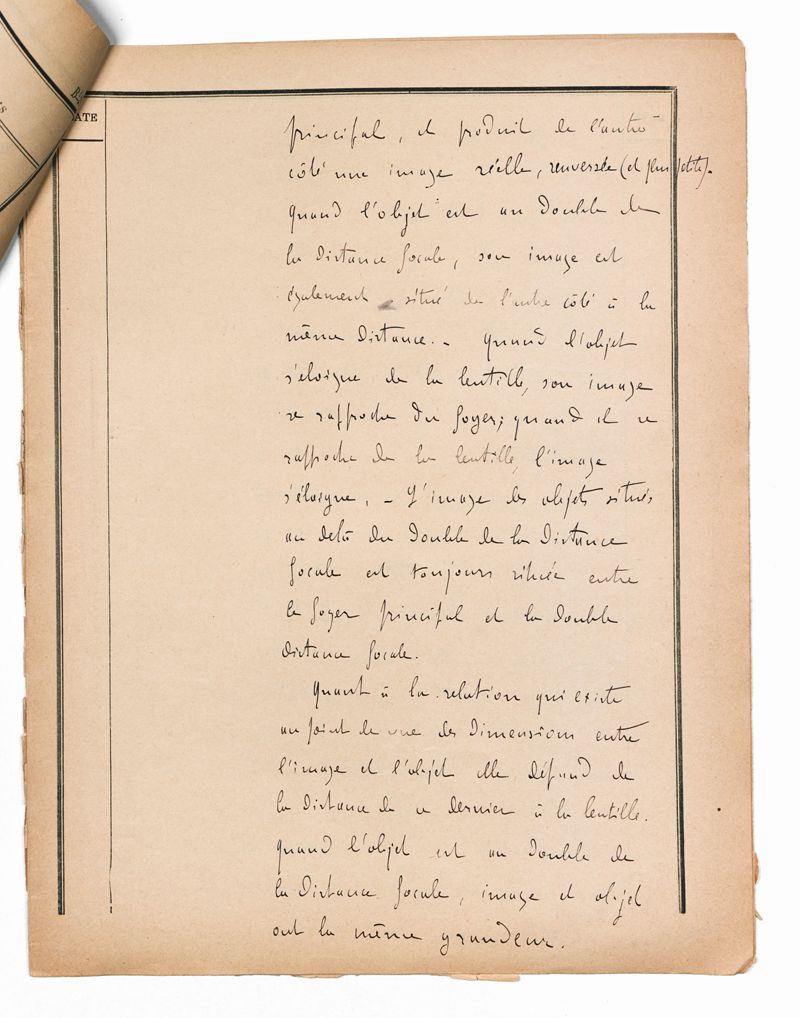 ATE
principal, et produit de l'autre
côté une image réelle, renversée (et plus petite).
quand l'objet est au double de
la distance focale, son image est
également situé de l'autre côté à la
même distance. - Quand l'objet
s'éloigne de la lentille, son image
se rapproche du foyer; quand il se
rapproche de la lentille, l'image
s'éloigne. - L'image des objets situés
au delà du double de la distance
focale est toujours située entre
le foyer principal et la double
distance focale.
Quant à la relation qui existe
au point de vue des dimensions entre
l'image et l'objet elle dépend de
la distance de ce dernier à la lentille.
quand l'objet est au double de
la distance focale, image et objet
ont la même grandeur.